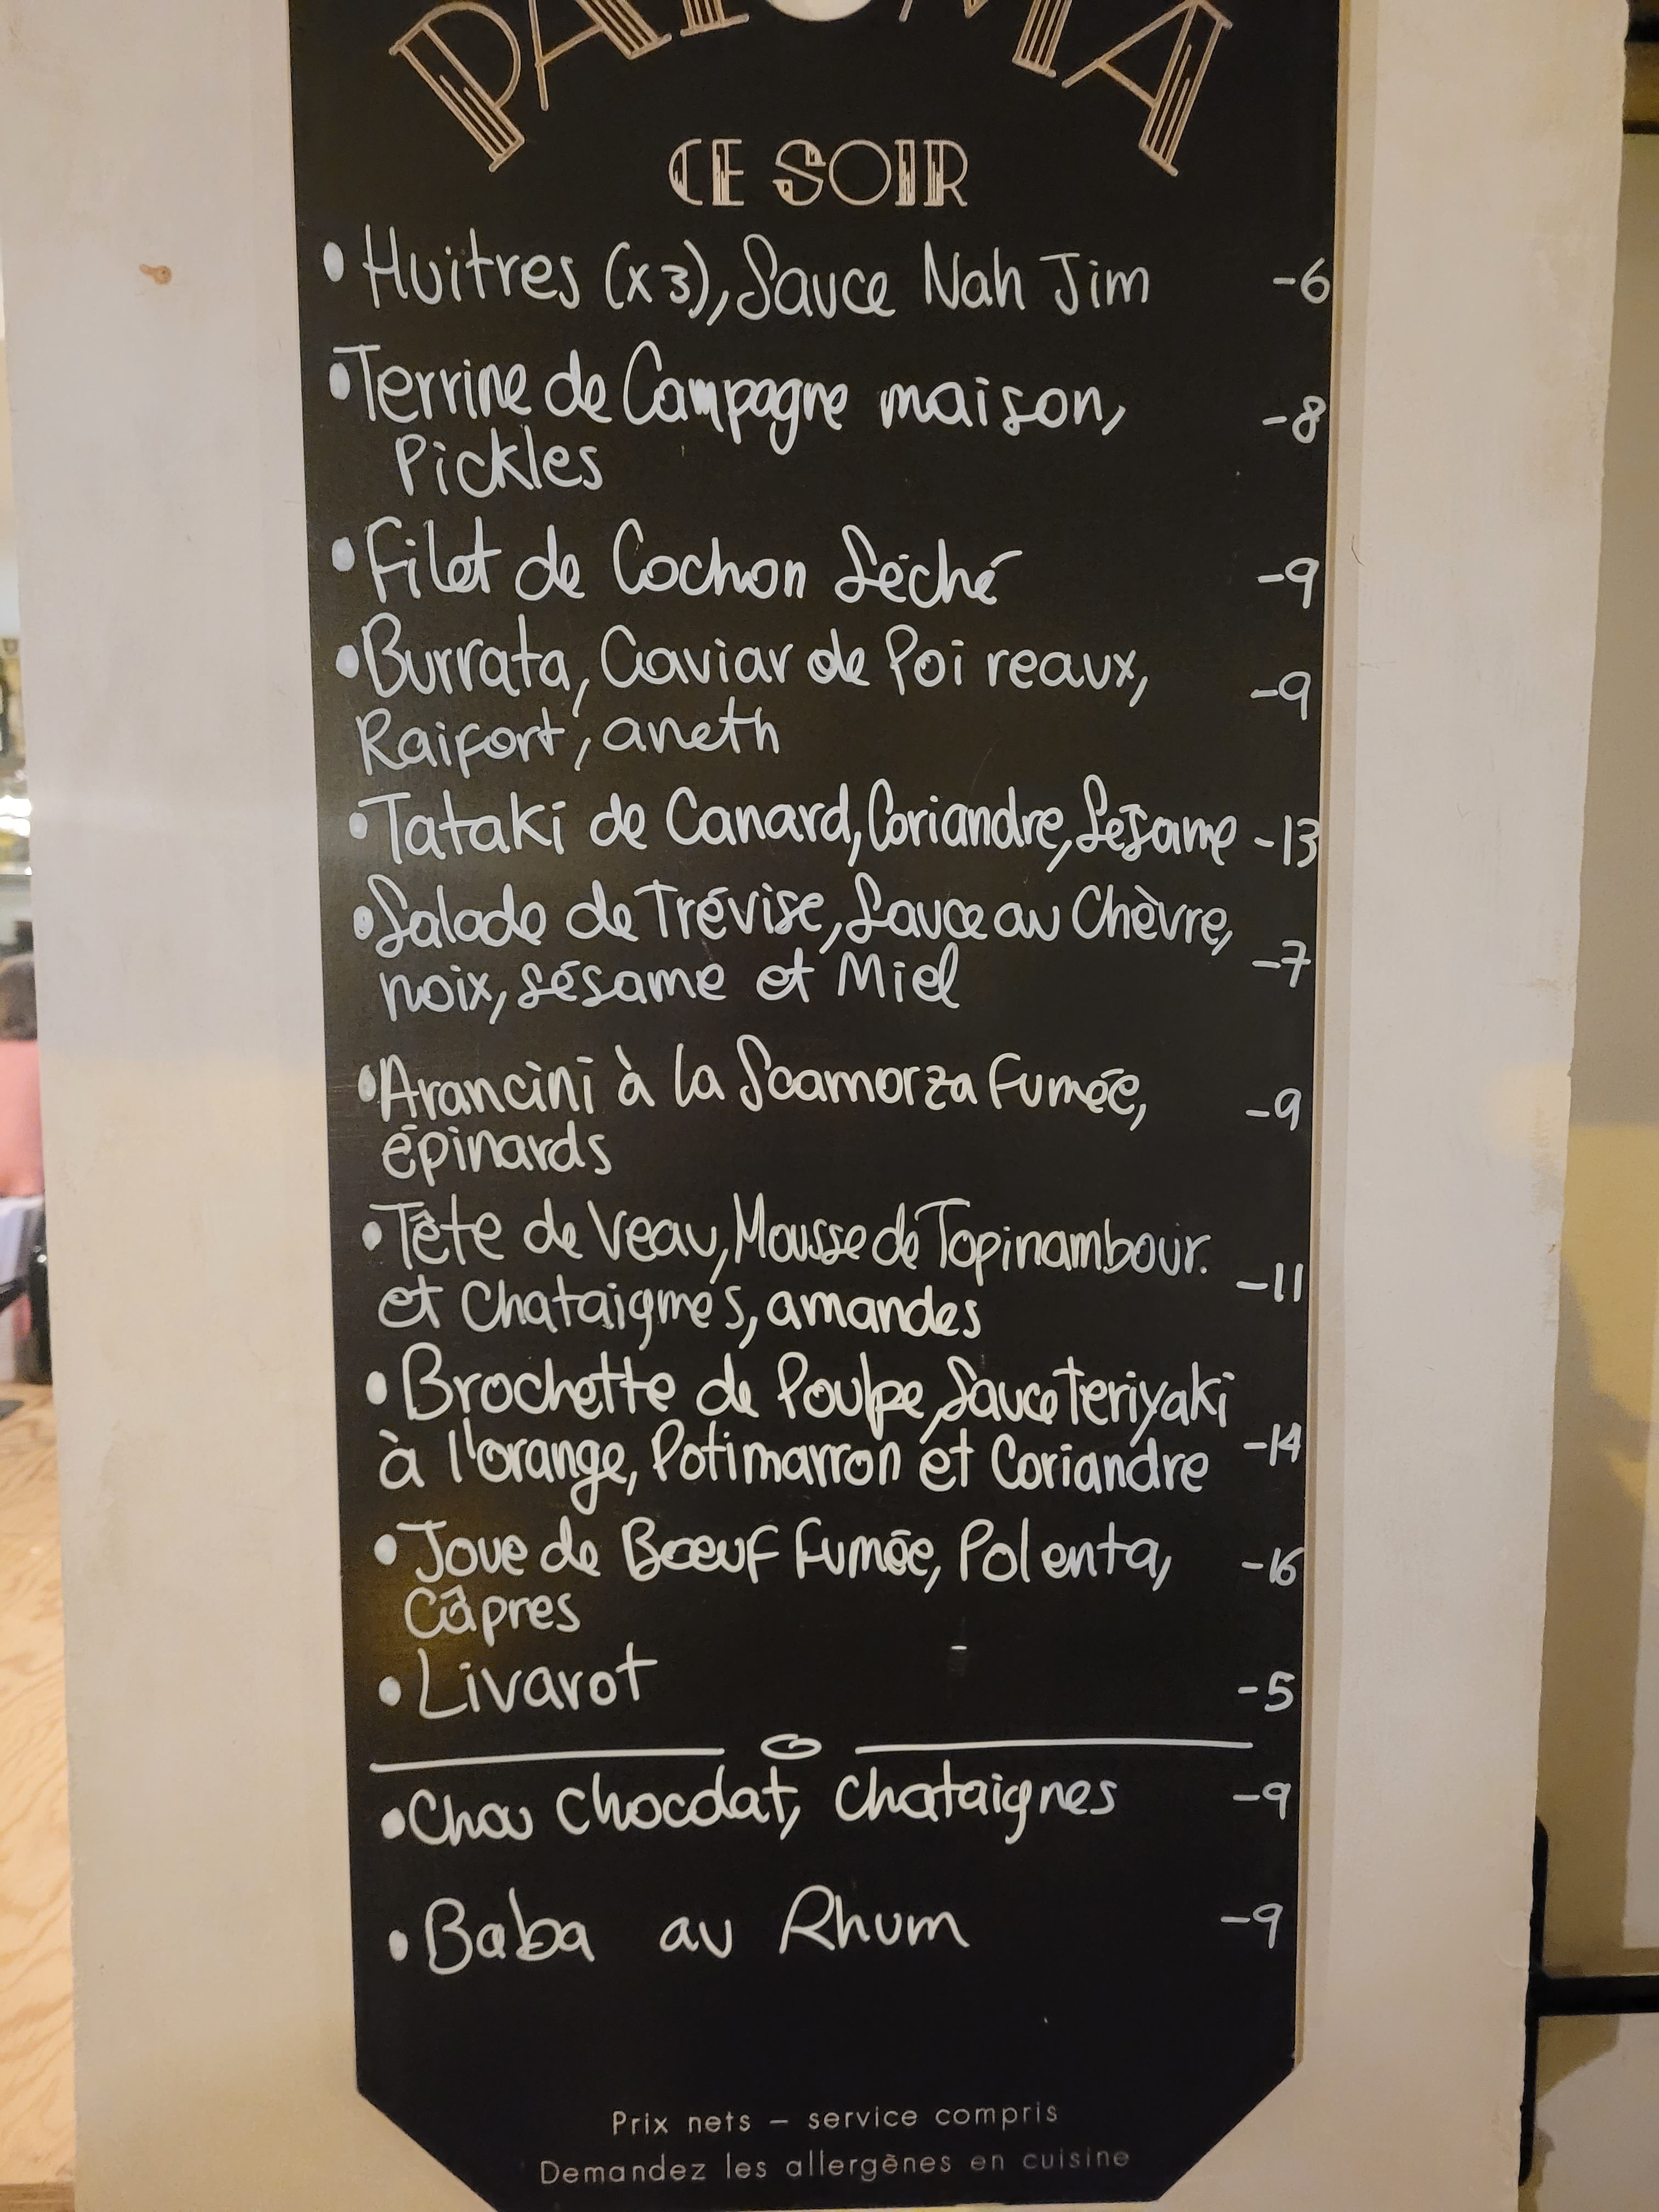 CE SOIR
• Huîtres (x3), Sauce Nah Jim -6
• Terrine de Campagne maison, -8
Pickles
• Filet de Cochon Séché -9
• Burrata, Caviar de Poireaux, -9
Raifort, aneth
• Tataki de Canard, Coriandre, Sésame -13
• Salade de Trévise, Sauce au Chèvre,
noix, sésame et Miel -7
• Arancini à la Scamorza fumée, -9
épinards
• Tête de Veau, Mousse de Topinambour.
et Chataignes, amandes -11
• Brochette de Poulpe, Sauce Teriyaki
à l'orange, Potimarron et Coriandre -14
• Joue de Bœuf fumée, Polenta, -16
Câpres
• Livarot -5
• Chou chocolat, chataignes -9
• Baba au Rhum -9
Prix nets – service compris
Demandez les allergènes en cuisine